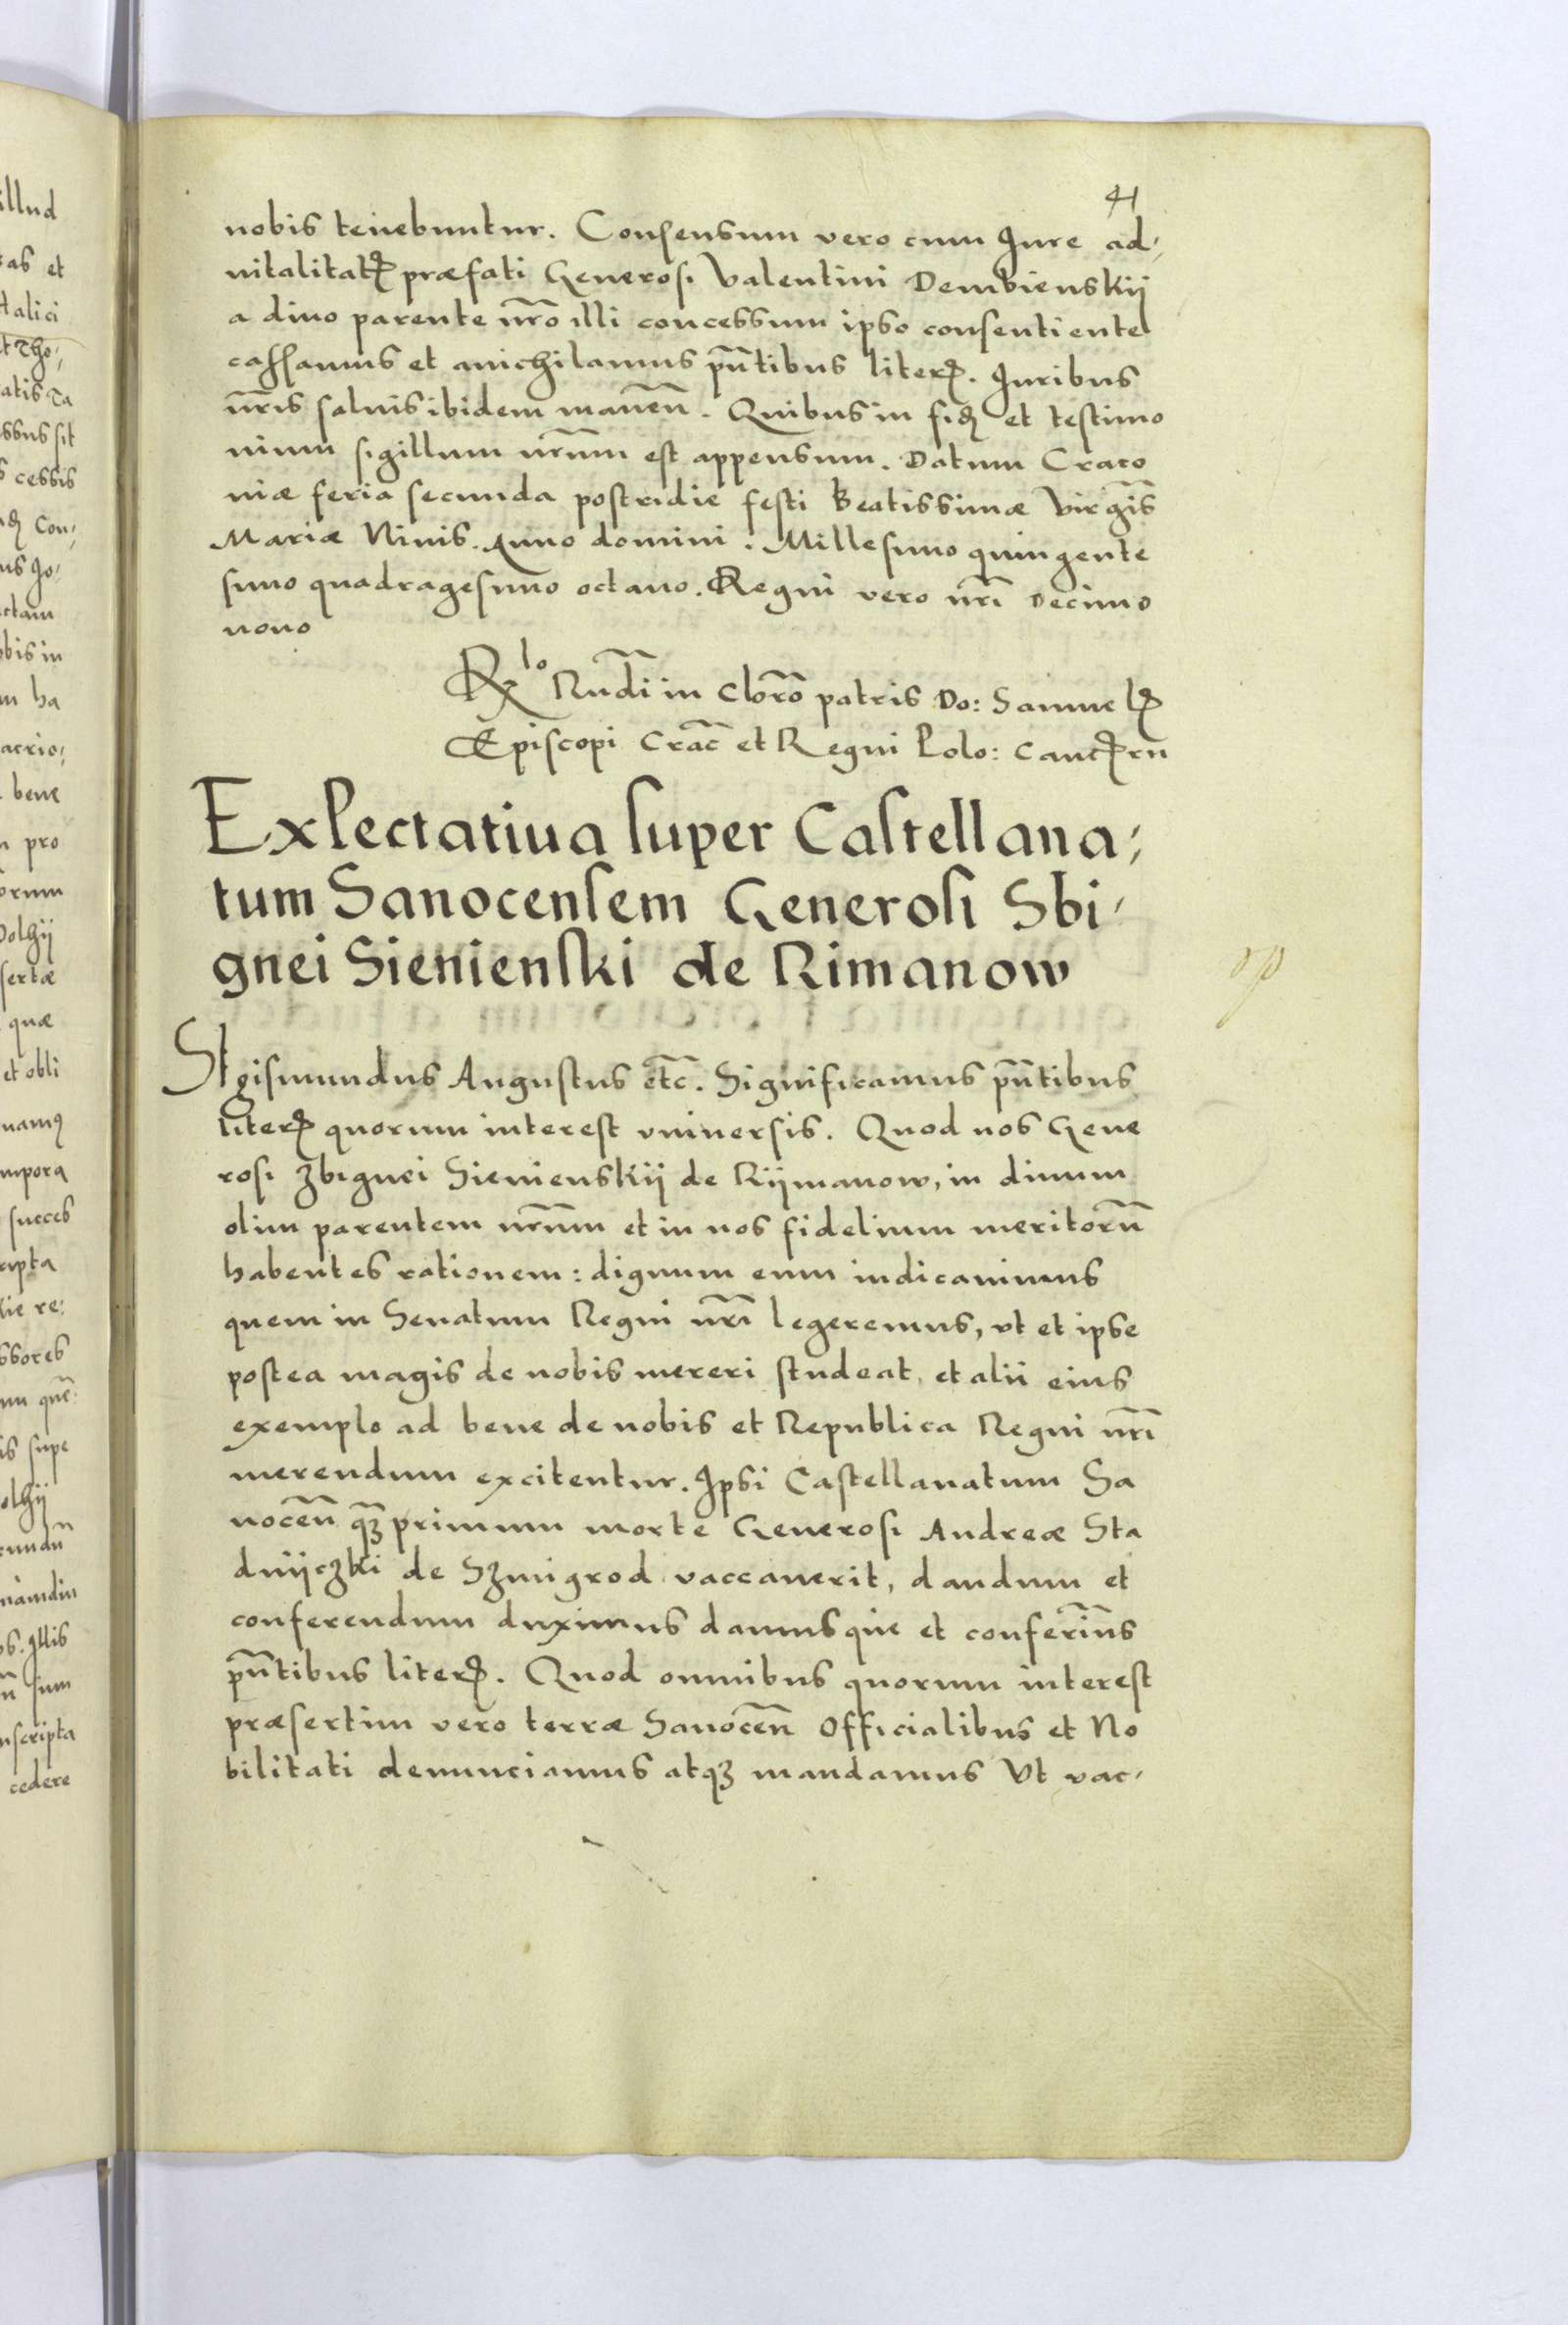 41
nobis tenebuntur. Consensum vero cum Jure ad,
vitalitatꝭ præfati Generosi Valentini Dembienskij
a divo parente nr̄o illi concessum ipso consentiente
cassamus et anichilamus pn̄tibus literꝭ. Juribus
nr̄is salvis ibidem manen̄. Quibus in fidꝫ et testimo
nium sigillum nr̄um est appensum. Datum Craco
viæ feria secunda postridie festi Beatissimæ Virgīs
Mariæ Nivis. Anno domini. Millesimo quingente
simo quadragesimo octavo. Regni vero nr̄i Decimo
nono
Rlo Rn̄di in Chr̄o patris Do: Samuelꝭ
Episcopi Crac̄ et Regni Polo: Cancꝭrii
Expectatiua super Castellana,
tum Sanocensem Generosi Sbi,
gnei Sienienski de Rimanow
Sigismundus Augustus etc̄. Significamus pn̄tibus
literꝭ quorum interest vniuersis. Quod nos Gene
rosi Zbignei Sienienskij de Rijmanow, in diuum
olim parentem nr̄um et in nos fidelium meritorū
habentes rationem: dignum eum iudicauimus
quem in Senatum Regni nr̄i legeremus, vt et ipse
postea magis de nobis mereri studeat, et alii eius
exemplo ad bene de nobis et Republica Regni nr̄i
merendum excitentur. Ipsi Castellanatum Sa
nocen̄ qꝫ primum morte Generosi Andreæ Sta
dnijczki de Szmigrod vaccauerit, dandum et
conferendum duximus damusque et conferim̄us
pn̄tibus literꝭ. Quod omnibus quorum interest
præsertim vero terræ Sanocen̄ Officialibus et No
bilitati denunciamus atqꝫ mandamus Vt vac,